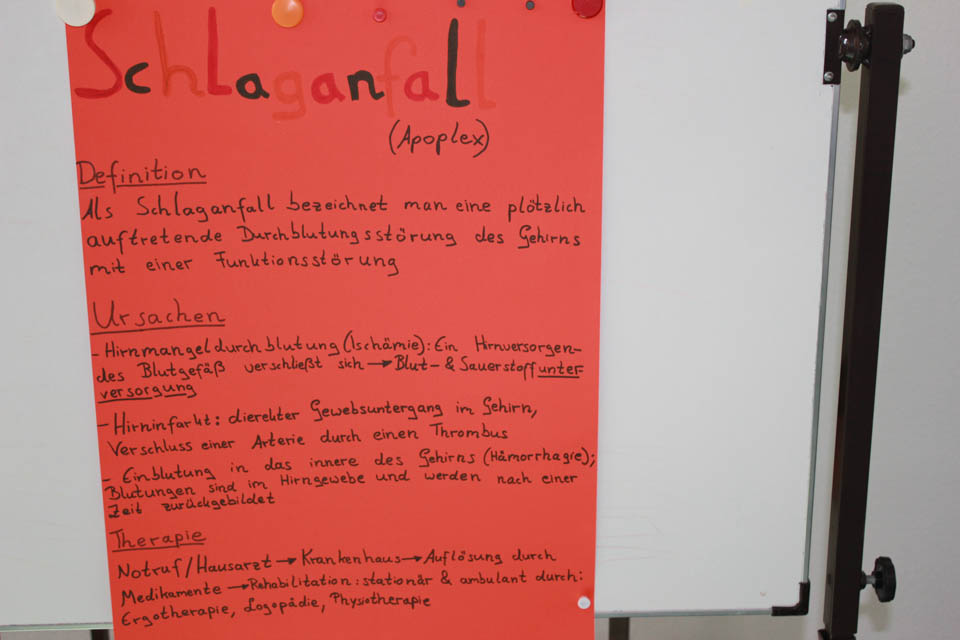 Schlaganfall
(Apoplex)
Definition
Als Schlaganfall bezeichnet man eine plötzlich
auftretende Durchblutungsstörung des Gehirns
mit einer Funktionsstörung
Ursachen
- Hirnmangeldurchblutung (Ischämie): Ein Hirnversorgen-
des Blutgefäß verschließt sich → Blut- & Sauerstoffunter
versorgung
- Hirninfarkt: dierekter Gewebsuntergang im Gehirn,
Verschluss einer Arterie durch einen Thrombus
- Einblutung in das innere des Gehirns (Hämorrhagie);
Blutungen sind im Hirngewebe und werden nach einer
Zeit zurückgebildet
Therapie
Notruf/Hausarzt → Krankenhaus → Auflösung durch
Medikamente → Rehabilitation: stationär & ambulant durch:
Ergotherapie, Logopädie, Physiotherapie